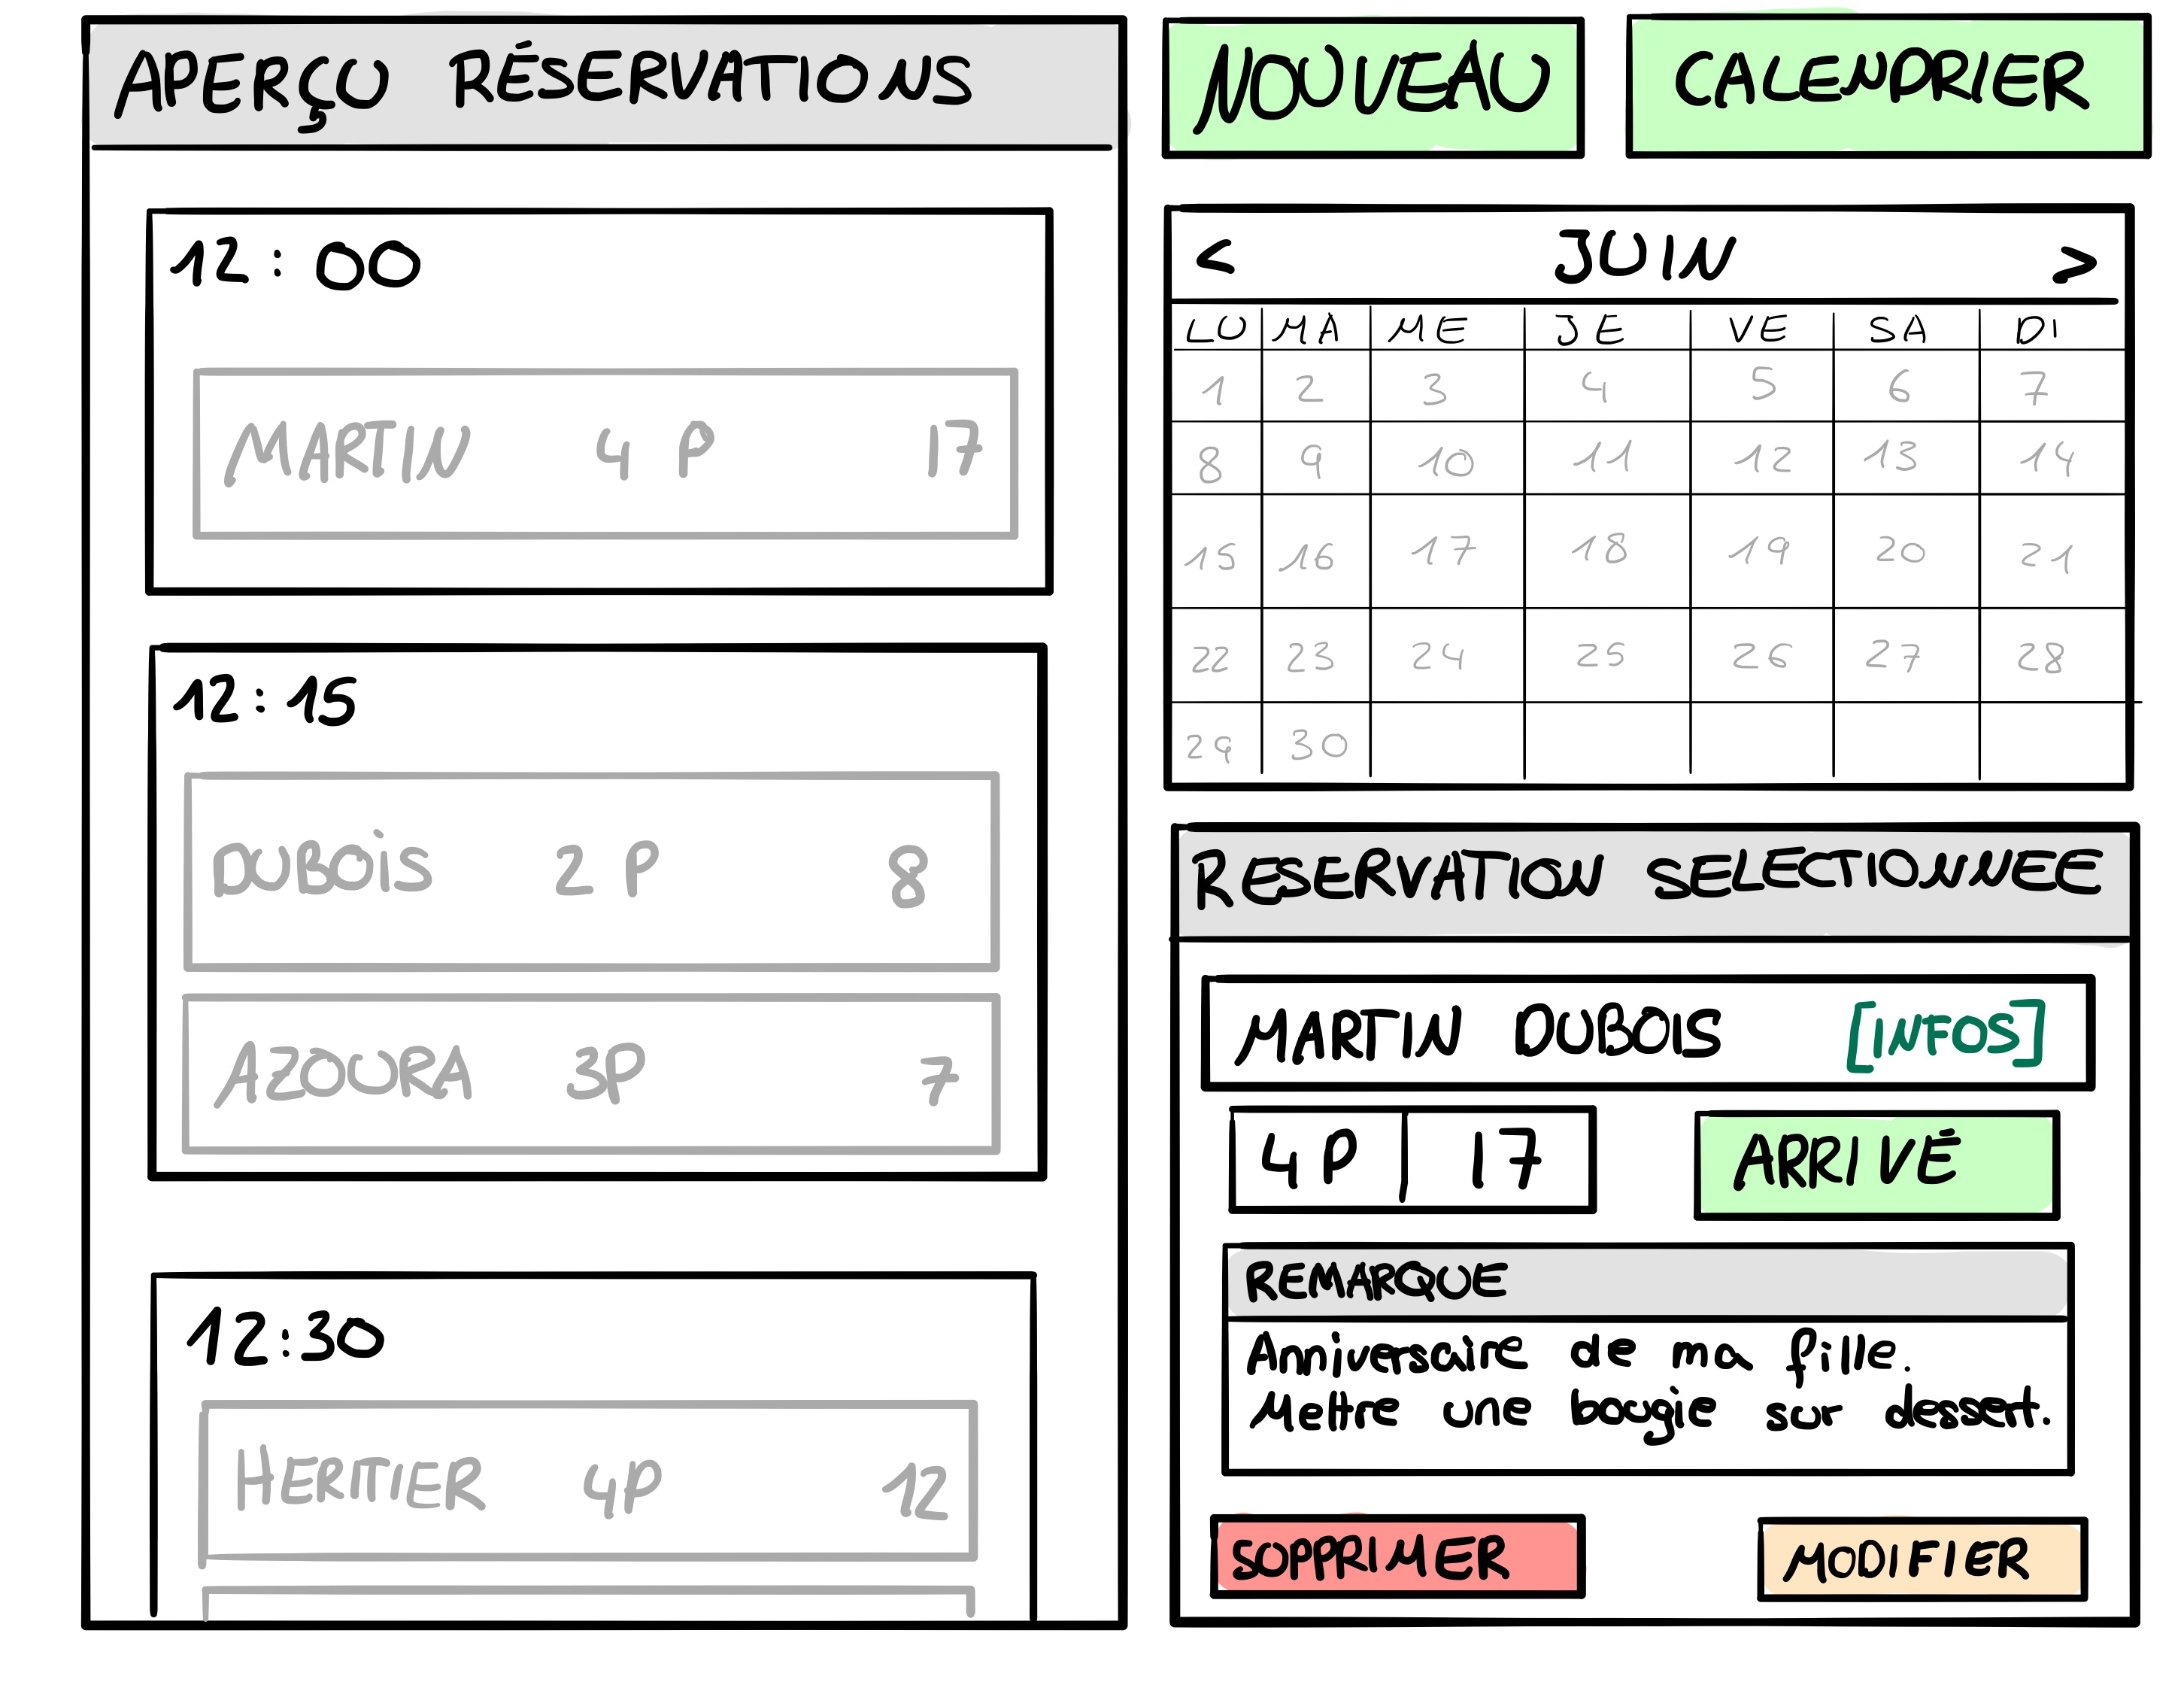 APERÇU RÉSERVATIONS
12:00
MARTIN 4 P 17
12:15
DUBOIS 2 P 8
AZOURA 3P 7
12:30
HERITIER 4P 12
NOUVEAU
CALENDRIER
< JUIN >
LU MA ME JE VE SA DI
1 2 3 4 5 6 7
8 9 10 11 12 13 14
15 16 17 18 19 20 21
22 23 24 25 26 27 28
29 30
RESERVATION SELECTIONNEE
MARTIN DUBOIS [INFOS]
4P 17 ARRIVÉ
REMARQUE
Anniversaire de ma fille.
Mettre une bougie sur dessert.
SUPPRIMER MODIFIER